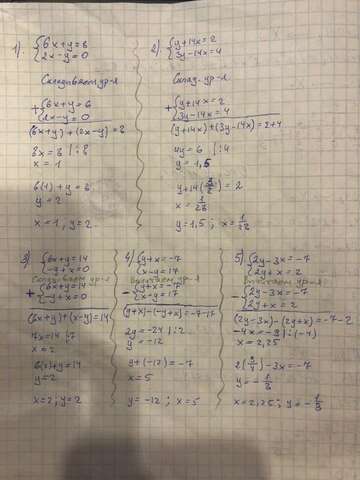 1). {6x+y=8
2x-y=0
Складываем ур-я
+{6x+y=6
2x-y=0
(6x+y)+(2x-y)=8
8x=8 |:8
x=1
6(1)+y=8
y=2
x=1, y=2.
2) {y+14x=2
3y-14x=4
Склад. ур-я
+{y+14x=2
3y-14x=4
(y+14x)+(3y-14x)=2+4
4y=6 |:4
y=1,5
y+14(3/2)=2
x=1/28
y=1,5; x=1/28
3) {6x+y=14
-y+x=0
Складываем ур-я
+{6x+y=14
-y+x=0
(6x+y)+(x-y)=14
7x=14 |:7
x=2
6(2)+y=14
y=2
x=2; y=2
4) {y+x=-7
x-y=17
Вычитаем ур-я
-{y+x=-7
x-y=17
(y+x)-(-y+x)=-7-17
2y=-24 |:2
y=-12
y+(-12)=-7
x=5
y=-12; x=5
5) {2y-3x=-7
2y+x=2
Вычитаем ур-я
-{2y-3x=-7
2y+x=2
(2y-3x)-(2y+x)=-7-2
-4x=-9 |:(-4)
x=2,25
2(9/4)-3x=-7
y=-1/8
x=2,25; y=-1/8